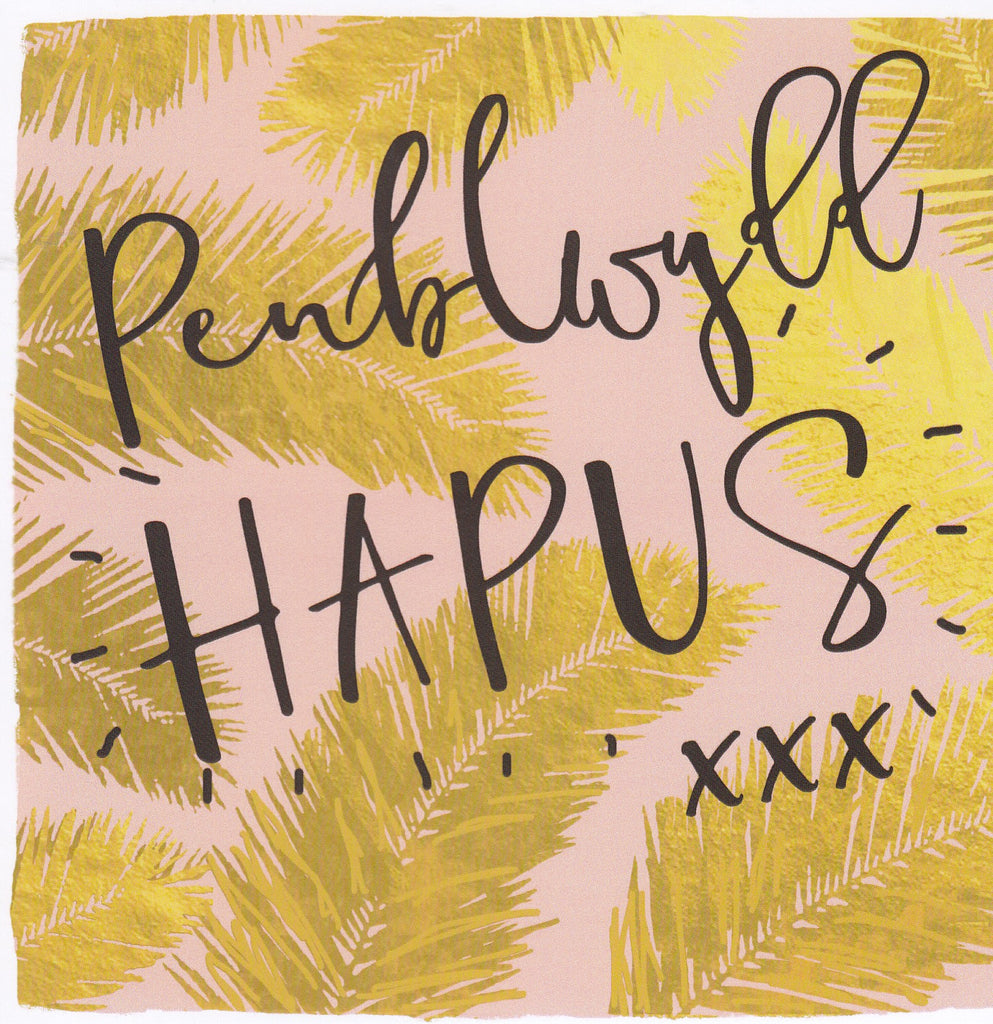 Penblwydd
HAPUS
xxx